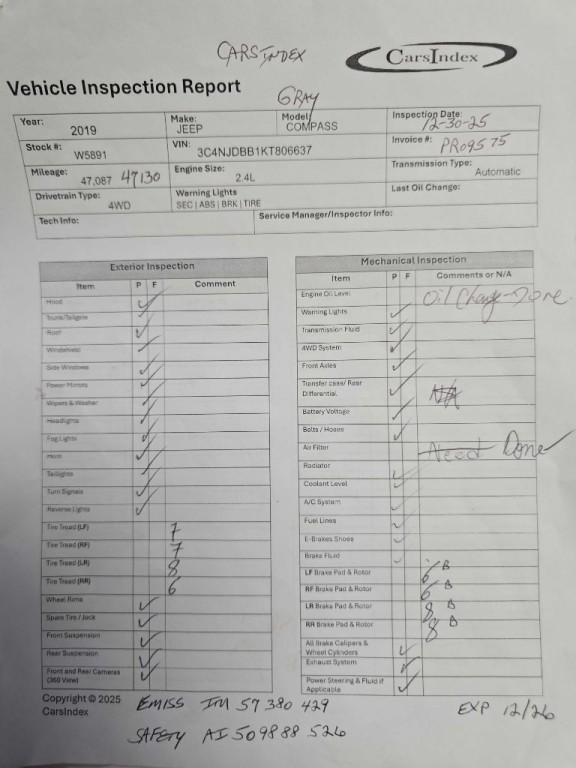 CARSINDEX
CarsIndex
Vehicle Inspection Report
GRAY
Year: 2019
Make: JEEP
Model: COMPASS
Inspection Date: 12-30-25
Stock #: W5891
VIN: 3C4NJDBB1KT806637
Invoice #: PR09575
Mileage: 47,087 47130
Engine Size: 2.4L
Transmission Type: Automatic
Drivetrain Type: 4WD
Warning Lights SEC | ABS | BRK | TIRE
Last Oil Change:
Tech Info:
Service Manager/Inspector Info:
Exterior Inspection
Item P F Comment
Hood ✓
Trunk/Tailgate ✓
Roof ✓
Windshield ✓
Side Windows ✓
Power Mirrors ✓
Wipers & Washer ✓
Headlights ✓
Fog Lights ✓
Horn ✓
Taillights ✓
Turn Signals ✓
Reverse Lights ✓
Tire Tread (LF) 7
Tire Tread (RF) 7
Tire Tread (LR) 8
Tire Tread (RR) 6
Wheel Rims ✓
Spare Tire / Jack ✓
Front Suspension ✓
Rear Suspension ✓
Front and Rear Cameras ✓
(360 View)
Mechanical Inspection
Item P F Comments or N/A
Engine Oil Level Oil Change-Done
Warning Lights ✓
Transmission Fluid ✓
4WD System ✓
Front Axles ✓
Transfer case/ Rear ✓ N/A
Differential
Battery Voltage ✓
Belts / Hoses ✓
Air Filter Need Done
Radiator ✓
Coolant Level ✓
A/C System ✓
Fuel Lines ✓
E-Brakes Shoes ✓
Brake Fluid ✓
LF Brake Pad & Rotor 6 B
RF Brake Pad & Rotor 6 B
LR Brake Pad & Rotor 8 B
RR Brake Pad & Rotor 8 B
All Brake Calipers & ✓
Wheel Cylinders
Exhaust System ✓
Power Steering & Fluid if ✓
Applicable
Copyright © 2025
CarsIndex
EMISS IM 57 380 429
EXP 12/26
SAFETY AI 509888 526